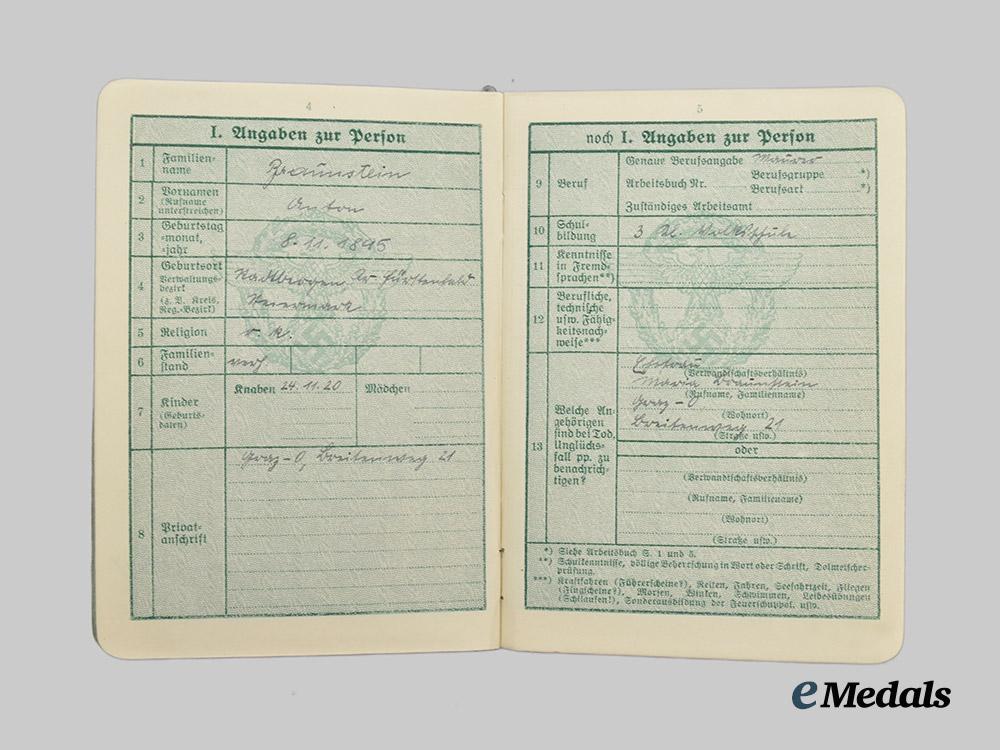 4
I. Angaben zur Person
1 Familien-
name
Braunstein
2 Vornamen
(Rufname
unterstreichen)
Anton
3 Geburtstag
-monat,
-jahr
8. 11. 1895
4 Geburtsort
Verwaltungs-
bezirk
(z. B. Kreis,
Reg.-Bezirk)
Kr. Fürstenfeld
Steiermark
5 Religion
r. k.
6 Familien-
stand
verh.
7 Kinder
(Geburts-
daten)
Knaben 24.11.20 Mädchen
8 Privat-
anschrift
Graz-O, Breitenweg 21
5
noch I. Angaben zur Person
9 Beruf
Genaue Berufsangabe Maurer
Arbeitsbuch Nr. Berufsgruppe *)
Berufsart *)
Zuständiges Arbeitsamt
10 Schul-
bildung
3 Kl. Volksschule
11 Kenntnisse
in Fremd-
sprachen**)
12 Berufliche,
technische
usw. Fähig-
keitsnach-
weise***
13 Welche An-
gehörigen
sind bei Tod,
Unglücks-
fall pp. zu
benachrich-
tigen?
Ehefrau
(Verwandschaftsverhältnis)
Maria Braunstein
(Rufname, Familienname)
Graz-O
(Wohnort)
Breitenweg 21
(Straße usw.)
oder
(Verwandschaftsverhältnis)
(Rufname, Familienname)
(Wohnort)
(Straße usw.)
*) Siehe Arbeitsbuch S. 1 und 5.
**) Schulkenntnisse, völlige Beherrschung in Wort oder Schrift, Dolmetscher-
prüfung.
***) Kraftfahren (Führerscheine?), Reiten, Fahren, Seefahrtzeit, Fliegen
(Flugscheine?), Morsen, Winken, Schwimmen, Leibesübungen
(Schilaufen!), Sonderausbildung der Feuerschutzpol. usw.
eMedals